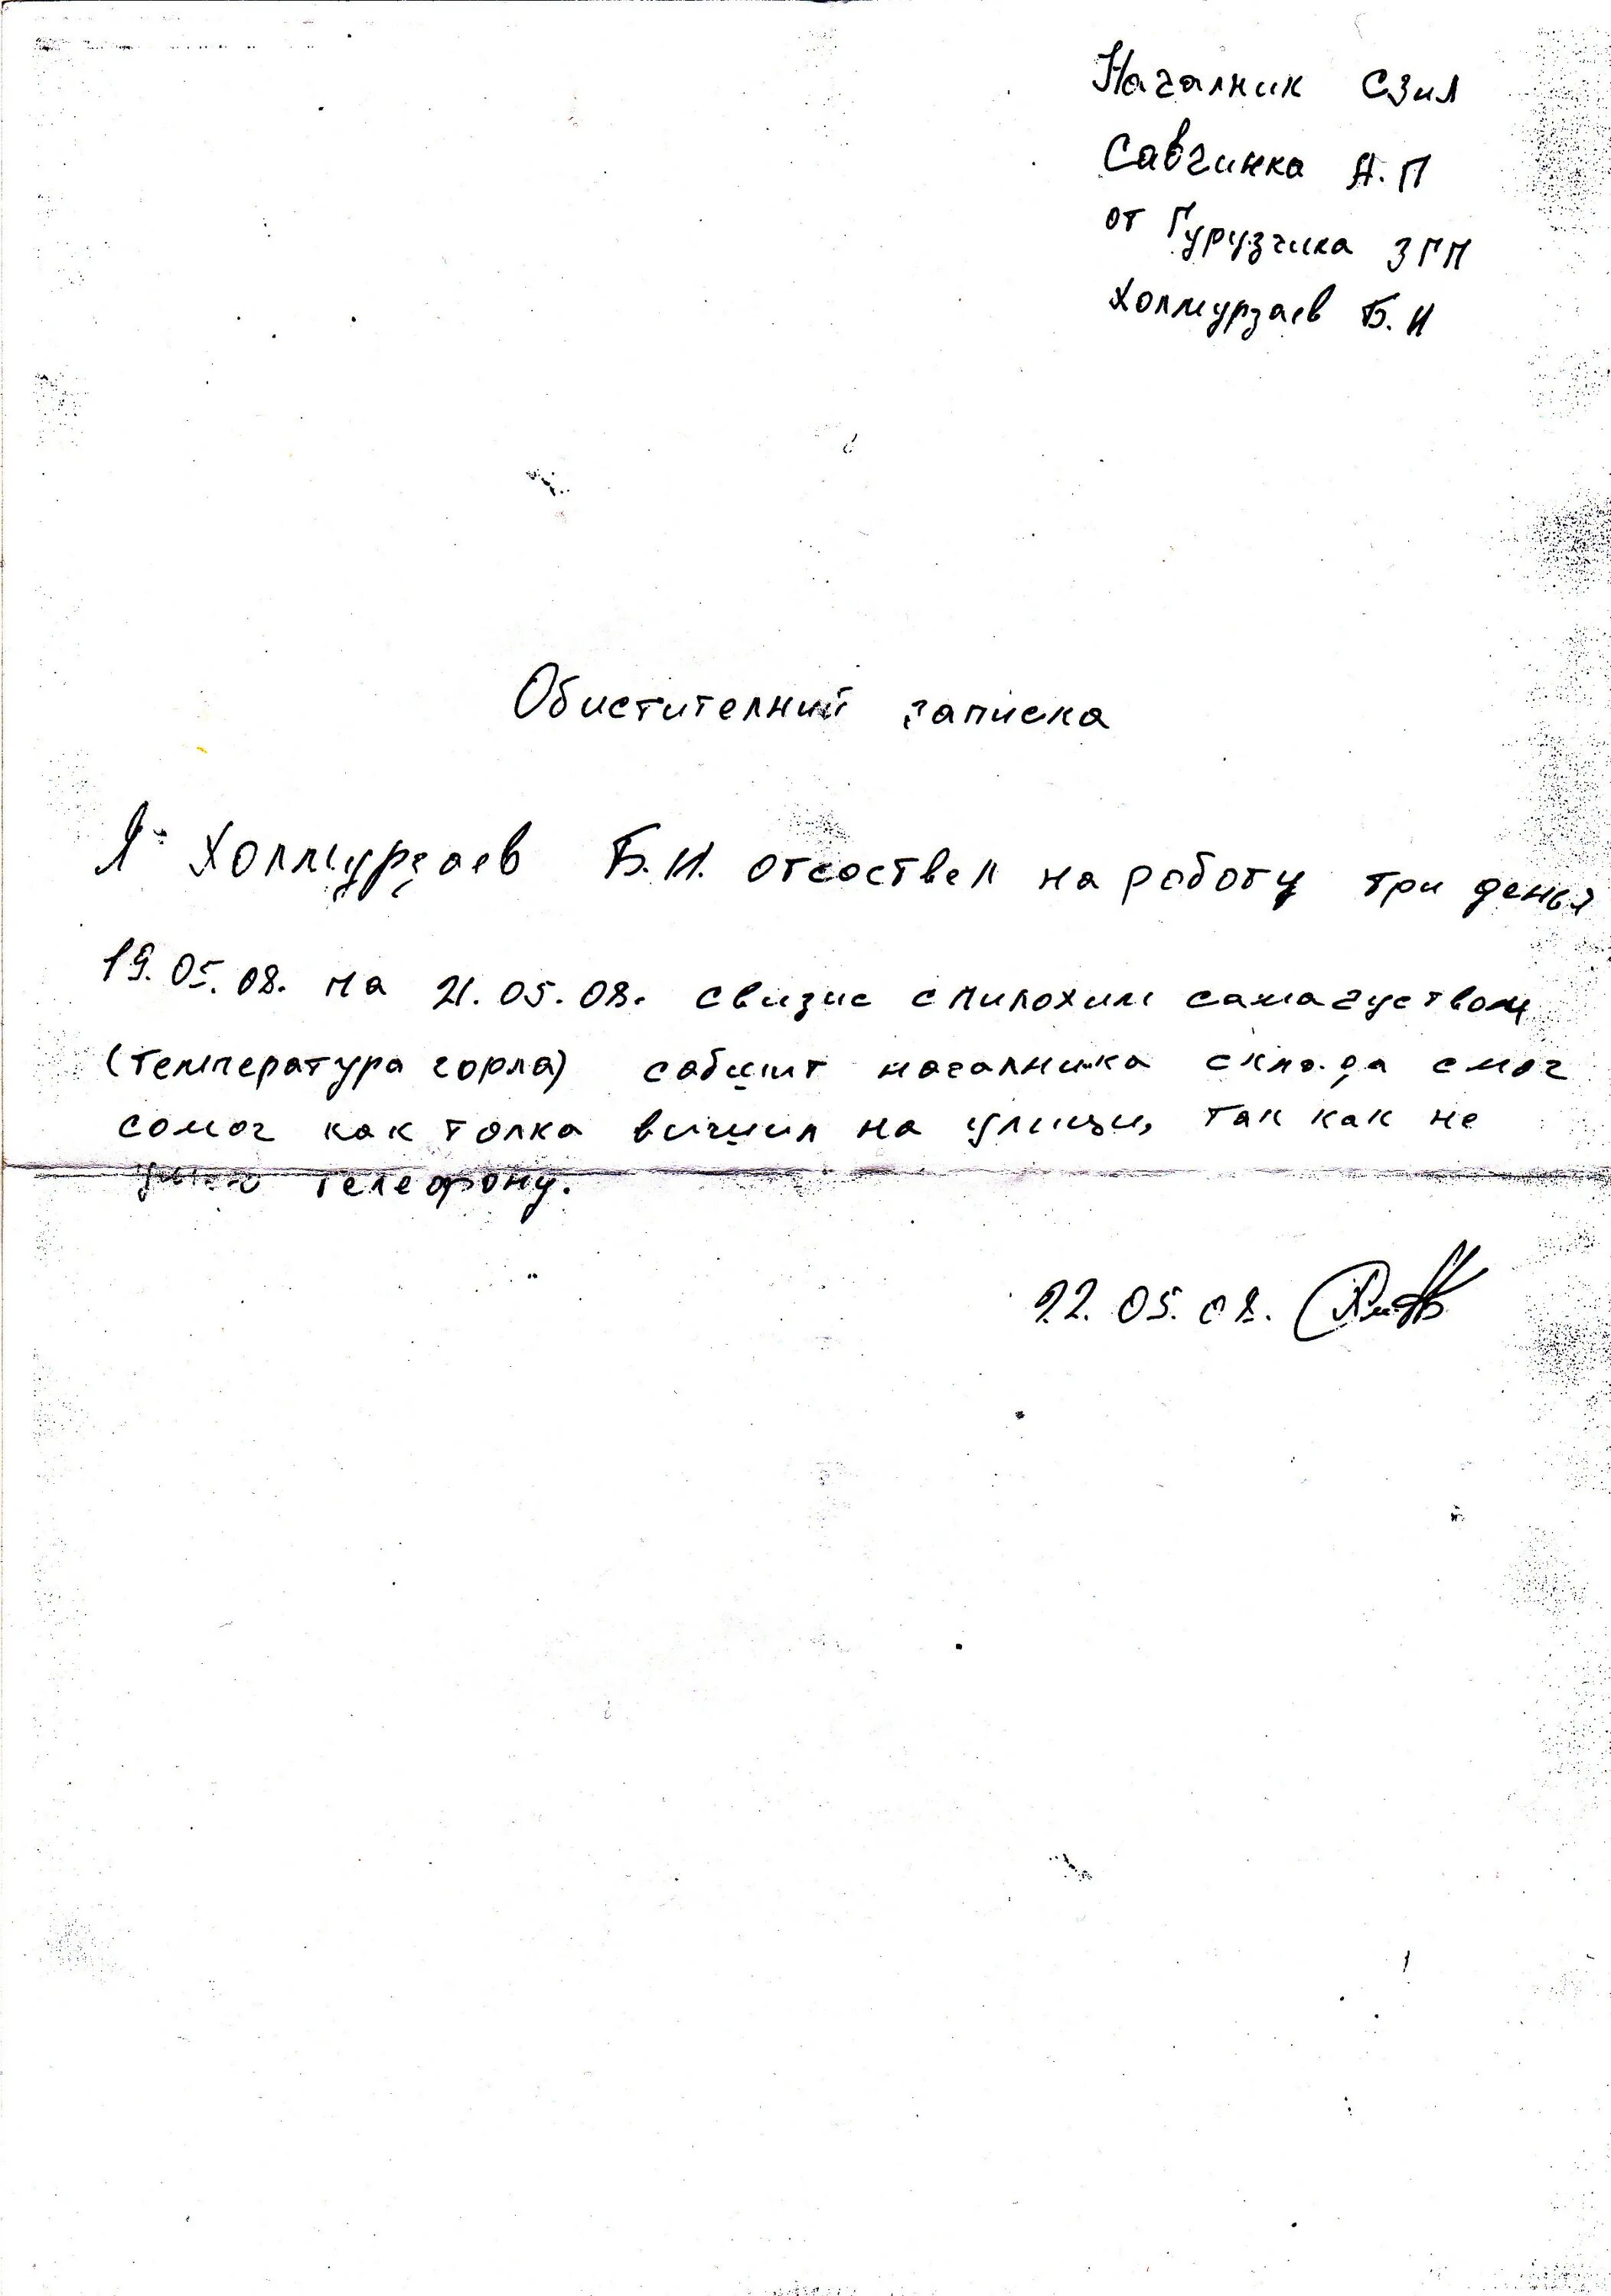 Началник СЗИЛ
Савчинка А.П
от Гурузчика ЗГП
Холмурзаев Б.И
Обиститеlний записка
Я Холмурзаев Б.И. отсоствел на роботу три денья
19.05.08. на 21.05.08. свизис спилохим самачуством
(температура горла) сабшит началника склада смог
сомог как толка вишил на улици, так как не
телефону.
22.05.08.